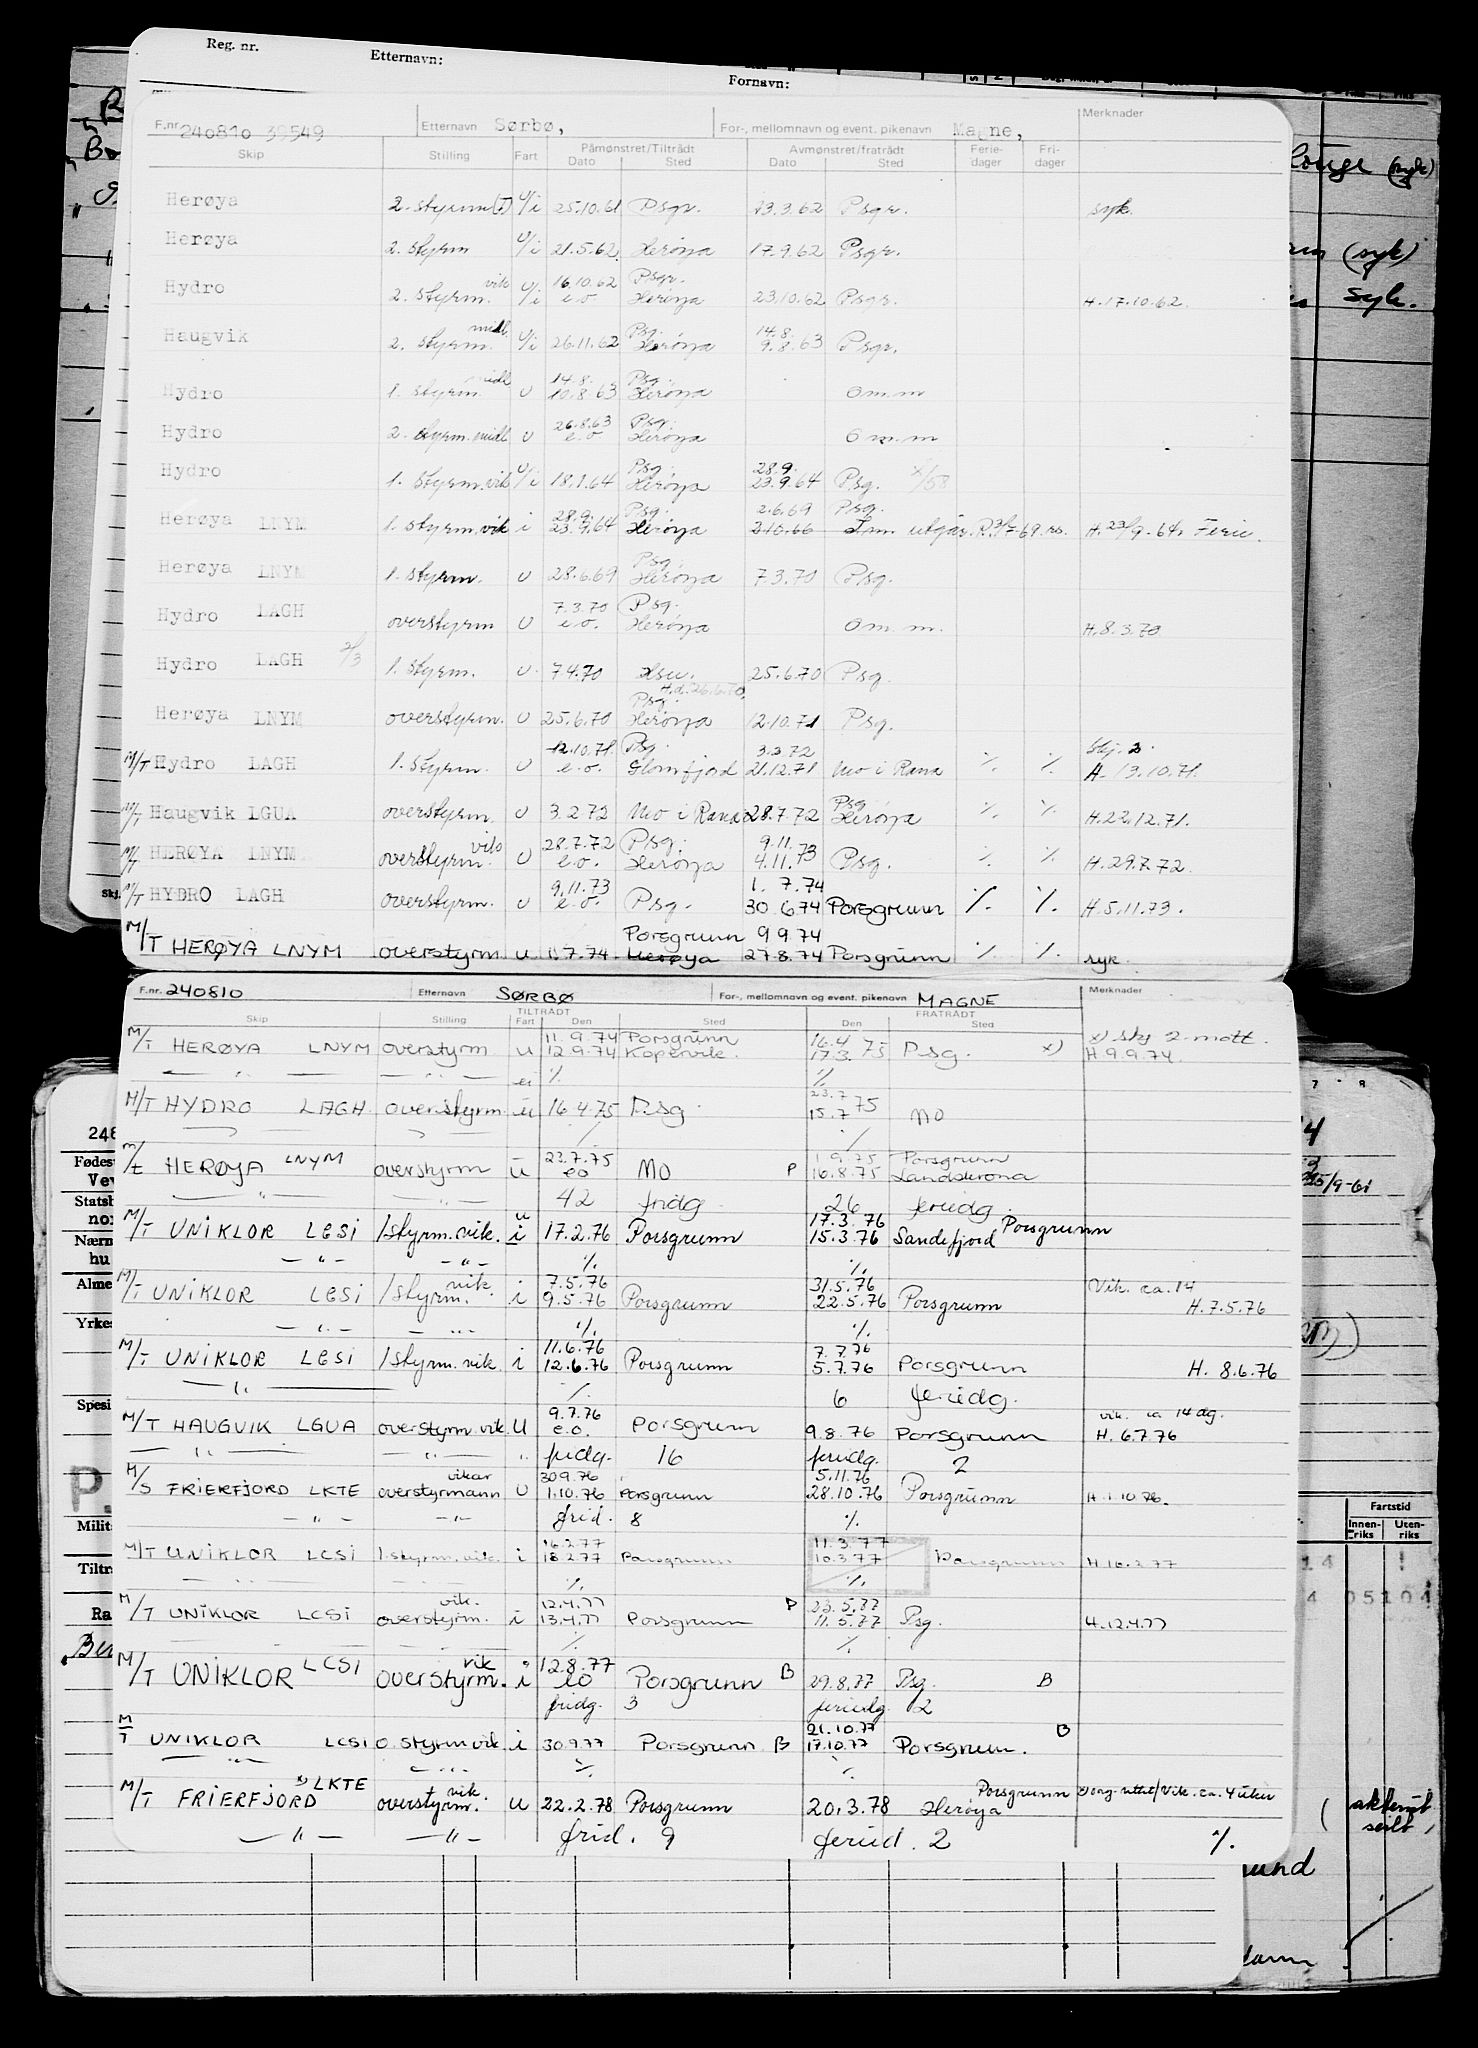 Reg. nr. Etternavn: Fornavn:
F.nr. 240810 39549 Etternavn Sørbø, For-, mellomnavn og event. pikenavn Magne, Merknader
Skip Stilling Fart Påmønstret/Tiltrådt Dato Sted Avmønstret/fratrådt Dato Sted Ferie-dager Fri-dager
Herøya 2. styrm u/i 25.10.61 Psgr. 23.3.62 Psgr. syk.
Herøya 2. styrm u/i 21.5.62 Herøya 17.9.62 Psgr.
16.10.62 Psgr.
Hydro 2. styrm. vik u/i e.o. Herøya 23.10.62 Psgr. H.17.10.62.
midl. Psg. 14.8.
Haugvik 2. styrm. u/i 26.11.62 Herøya 9.8.63 Psgr.
midl 14.8. Psg.
Hydro 1. styrm. u 10.8.63 Herøya omm
26.8.63 Psg.
Hydro 2. styrm. midl u e.o. Herøya omm
Psg. 28.9.
Hydro 1. styrm. vik u/i 18.1.64 Herøya 23.9.64 Psg. x/58
28.9. Psg. 2.6.69 Psg.
Herøya LNYM 1. styrm. vik i 23.9.64 Herøya 2.10.66 H.23/9-64 Ferie.
Psg.
Herøya LNYM 1. styrm. u 28.6.69 Herøya 7.3.70 Psg.
7.3.70 Psg.
Hydro LAGH overstyrm u e.o. Herøya om.m. H.8.3.70
Hydro LAGH 2/3 1. styrm. u 7.4.70 25.6.70 Psg.
Psg. H.d. 26.6.70
Herøya LNYM overstyrm. u 25.6.70 Herøya 12.10.71 Psg.
12.10.71. Psg. 3.2.72
M/T Hydro LAGH 1. styrm. u e.o. Glomfjord 21.12.71 Mo i Rana ./. ./. H. 13.10.71.
Psg
M/T Haugvik LGUA overstyrm. u 3.2.72 Mo i Rana 28.7.72 Herøya ./. ./. H.22.12.71.
vik 28.7.72 Psg. 9.11.
M/T HERØYA LNYM overstyrm. u e.o. Herøya 4.11.73 Psg. ./. ./. H.29.7.72.
9.11.73 1.7.74
M/T HYDRO LAGH overstyrm. u e.o. Psg. 30.6.74 Porsgrunn ./. ./. H.5.11.73.
Porsgrunn 9.9.74
M/T HERØYA LNYM overstyrm. u 1.7.74 Herøya 27.8.74 Porsgrunn ./. ./. syk
F.nr. 240810 Etternavn SØRBØ For-, mellomnavn og event. pikenavn MAGNE Merknader
Skip Stilling TILTRÅDT Fart Den Sted FRATRÅDT Den Sted
11.9.74 Porsgrunn 16.4.75 x) skj 2 mott.
M/T HERØYA LNYM overstyrm u 12.9.74 Kopervik. 17.3.75 Psg. x) H.9.9.74.
— " — ./. ./.
23.7.75
M/T HYDRO LAGH overstyrm. u 16.4.75 Psg. 15.7.75 MO
23.7.75 1.9.75 Porsgrunn
M/T HERØYA LNYM overstyrm u eo MO P 16.8.75 Landskrona
— " — 42 fridg 26 feridg.
u 17.3.76 Porsgrunn
M/T UNIKLOR LCSI 1styrm. vik. i 17.2.76 Porsgrunn 15.3.76 Sandefjord
— " — ./. ./.
vik. 7.5.76 31.5.76 Vik. ca. 14
M/T UNIKLOR LCSI 1styrm. i 9.5.76 Porsgrunn 22.5.76 Porsgrunn H.7.5.76
— " — ./. ./.
11.6.76 7.7.76
M/T UNIKLOR LCSI 1styrm. vik. i 12.6.76 Porsgrunn 5.7.76 Porsgrunn H. 8.6.76
— " — ./. 6 feridg.
9.7.76 vik. ca 14 dg.
M/T HAUGVIK LGUA overstyrm. vik. u e.o. Porsgrunn 9.8.76 Porsgrunn H. 6.7.76
— " — fridg. 16 feridg. 2
vikar 30.9.76 5.11.76
M/S FRIERFJORD LKTE overstyrmann u 1.10.76 Porsgrunn 28.10.76 Porsgrunn H.1.10.76.
— " — frid. 8 ./.
16.2.77 11.3.77
M/T UNIKLOR LCSI 1.styrm. vik. i 18.2.77 Porsgrunn 10.3.77 Porsgrunn H.16.2.77
./. ./.
vik. 12.4.77 23.5.77
M/T UNIKLOR LCSI overstyrm. i 13.4.77 Porsgrunn P 11.5.77 Psg. H.12.4.77
./. ./.
vik 12.8.77
M/T UNIKLOR LCSI overstyrm. i eo Porsgrunn B 29.8.77 Psg. B
fridg. 3 feriedg. 2
21.10.77
M/T UNIKLOR LCSI o.styrm vik. i 30.9.77 Porsgrunn B 17.10.77 Porsgrunn. B
— " — ./. ./.
vik. Porsgrunn
M/T FRIERFJORD x) LKTE overstyrm. u 22.2.78 Porsgrunn 20.3.78 Herøya Vik. ca. 4 uker
— " — — " — frid. 9 feried. 2 ./.
(syk)
(syk)
syk.
Skj.
248
Fødest
Ve
Statsb
no
Nærm
hu
Alme
Yrkes
Spesi
P.
Milit
Tiltr
Ra
25/9-61
Fartstid
Innenriks Utenriks
14
4 05104
akternt
seilt